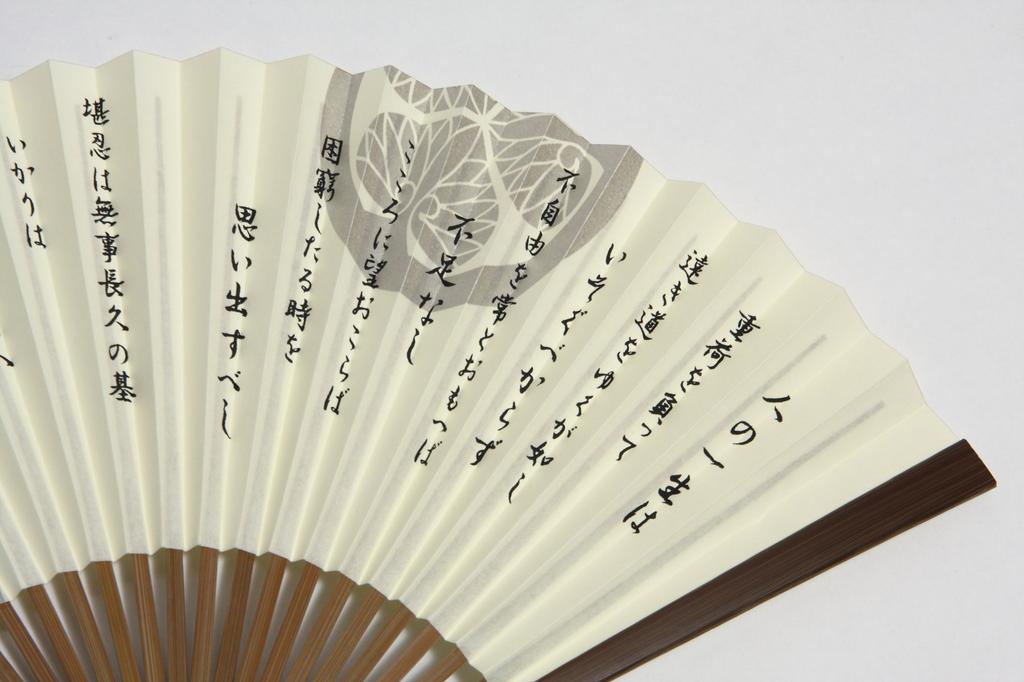 人の一生は
重荷を負って
遠き道をゆくが如し
いそぐべからず
不自由を常とおもへば
不足なし
こころに望おこらば
困窮したる時を
思い出すべし
堪忍は無事長久の基
いかりは